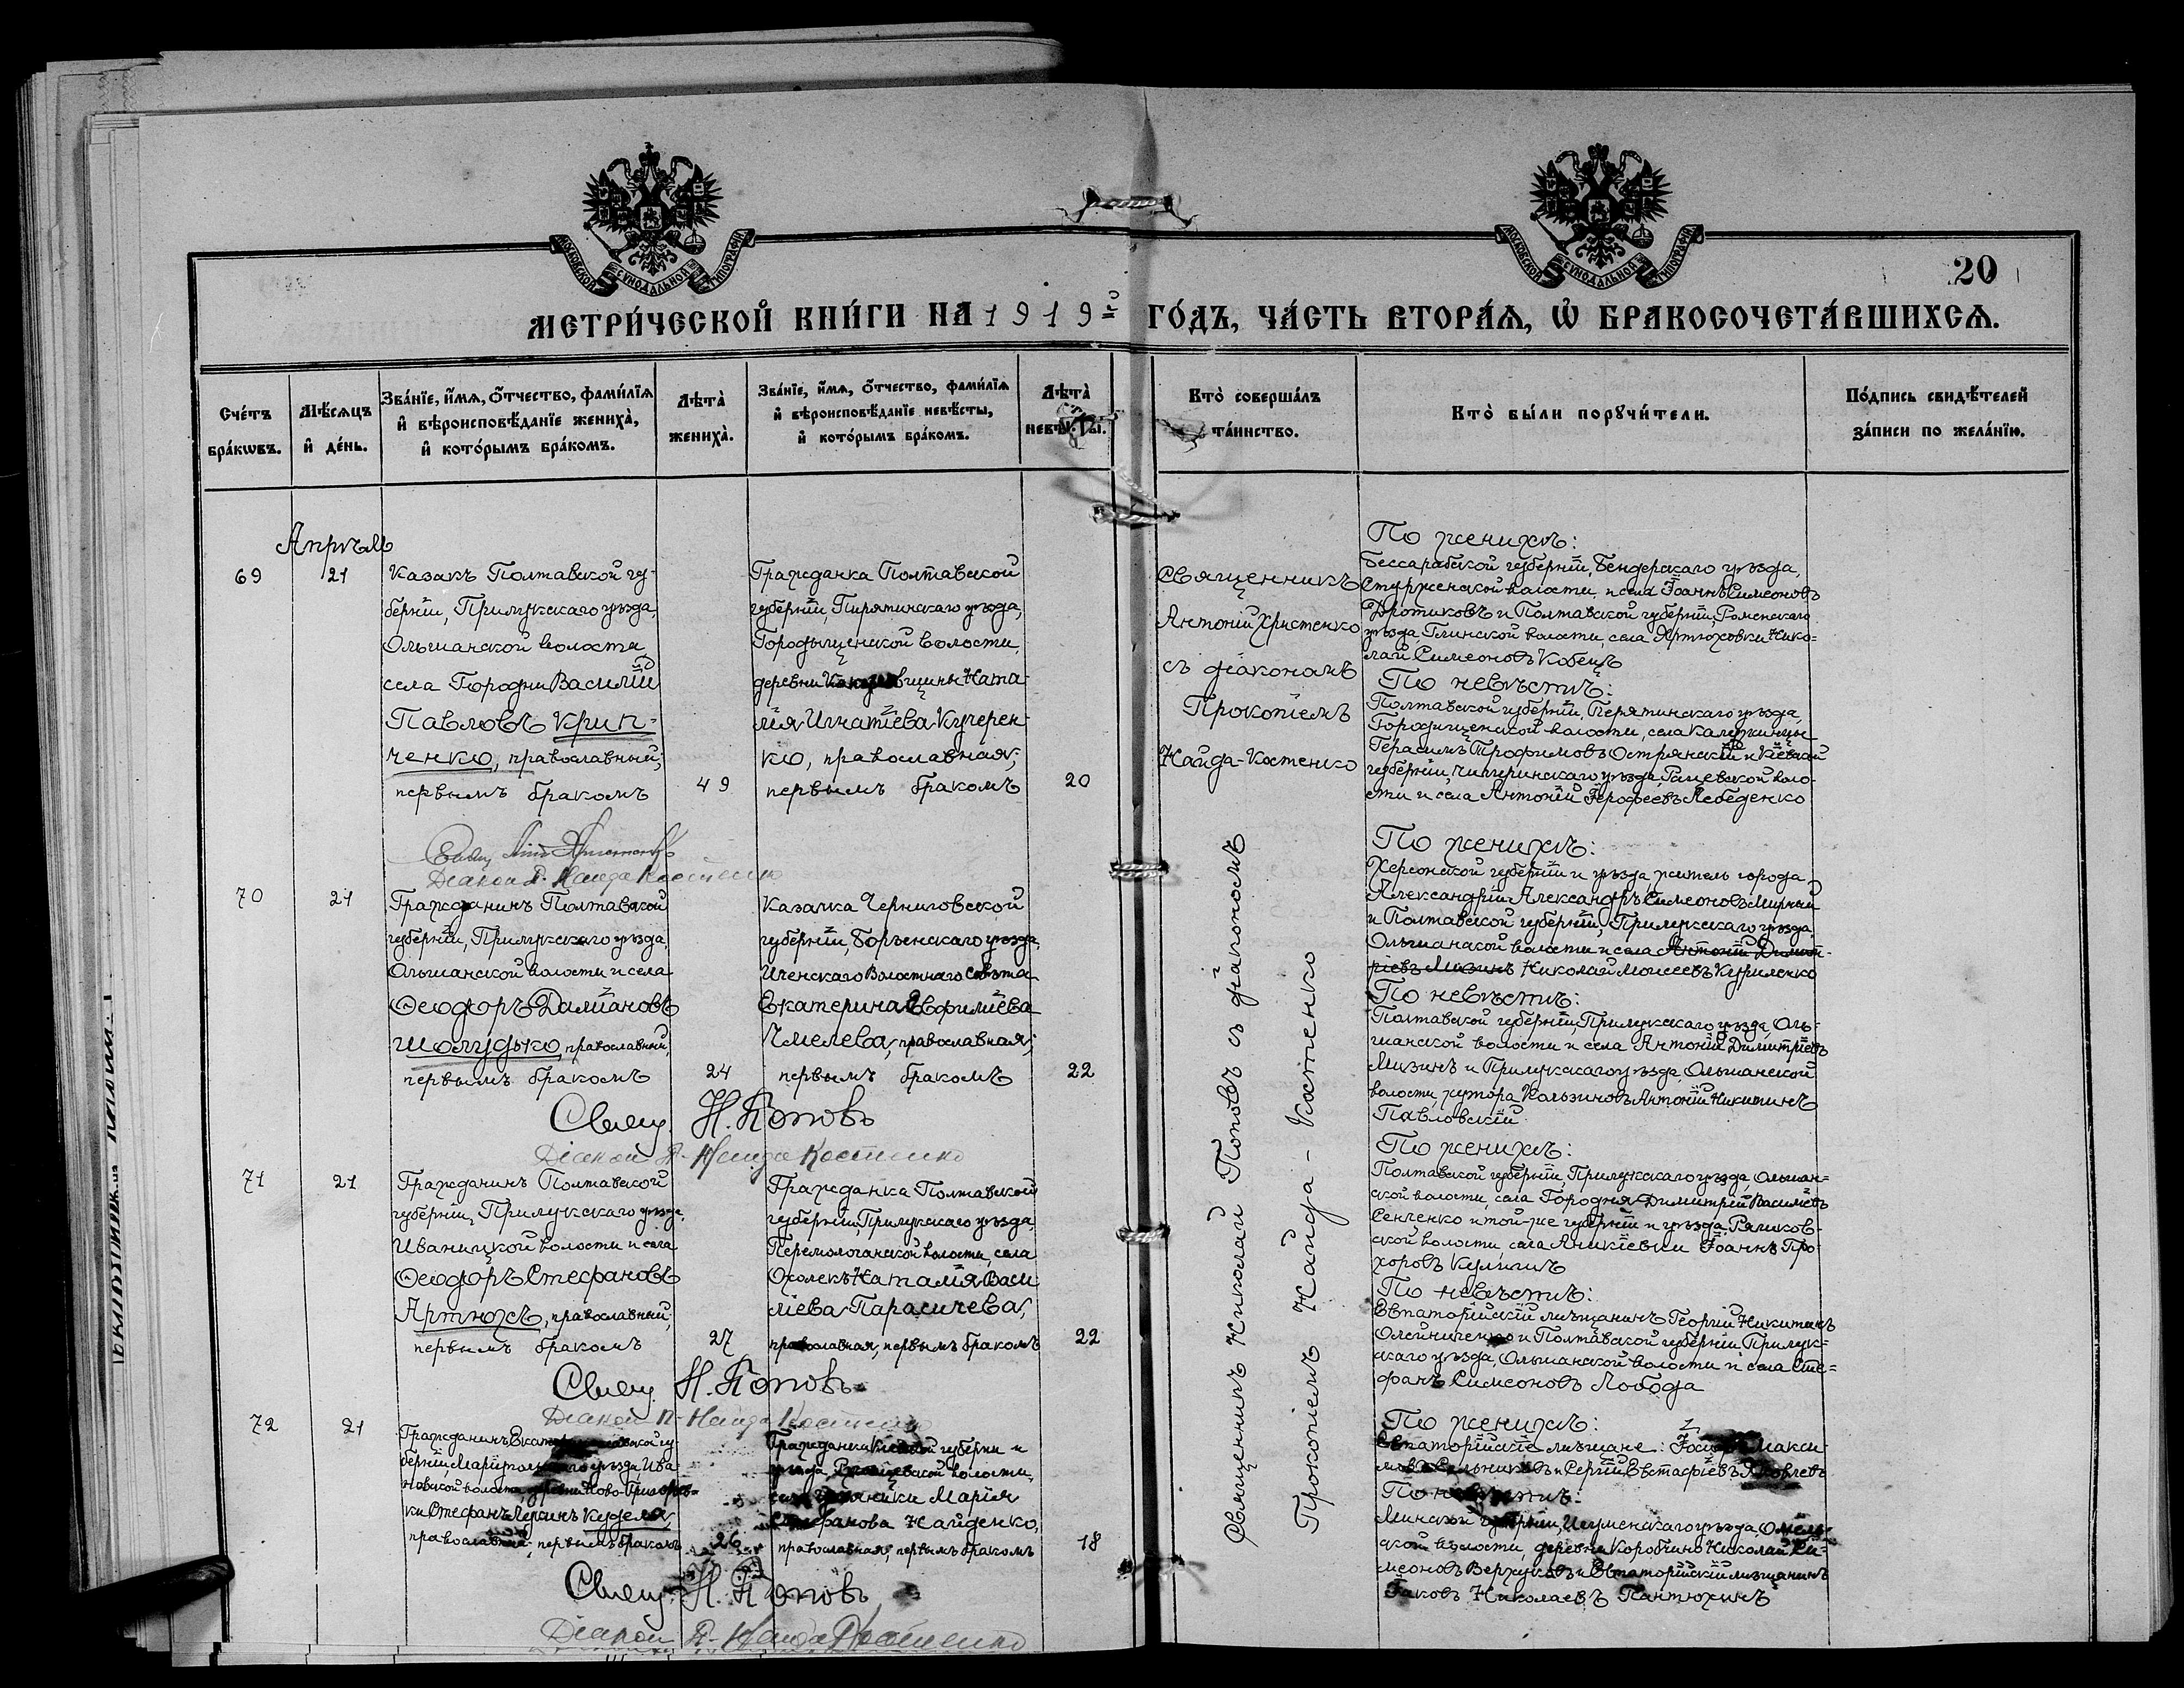 МОСКОВСКОЙ СѴНОДАЛЬНОЙ ТИПОГРАФІИ
МОСКОВСКОЙ СѴНОДАЛЬНОЙ ТИПОГРАФІИ
20
МЕТРИ́ЧЕСКОЙ КНИ́ГИ НА 1919й ГО́ДЪ, ЧА́СТЬ ВТОРА́Ѧ, Ѽ БРАКОСОЧЕТА́ВШИХСѦ.
Сче́тъ бра́кѡвъ.
Мѣ́сѧцъ и҆ де́нь.
Зва́нїе, и҆́мѧ, ѻ҆́тчество, фами́лїѧ
и҆ вѣроисповѣ́данїе жениха̀,
и҆ кото́рымъ бра́комъ.
Лѣта̀ жениха̀.
Зва́нїе, и҆́мѧ, ѻ҆́тчество, фами́лїѧ
и҆ вѣроисповѣ́данїе невѣ́сты,
и҆ кото́рымъ бра́комъ.
Лѣта̀ невѣ́сты.
Кто̀ соверша́лъ
та́инство.
Кто̀ бы́ли порꙋчи́тели.
По́дпись свидѣ́телей
за́писи по жела́нїю.
Апрѣль
69
21
Казакъ Полтавской гу-
берніи, Прилукскаго уѣзда,
Ольшанской волости,
села Городни Василій
Павловъ Крип-
ченко, православный;
первымъ бракомъ
49
Гражданка Полтавской
губерніи, Пирятинскаго уѣзда,
Городищенской волости,
деревни Ната-
лія Игнатіева Кучерен-
ко, православная;
первымъ бракомъ
20
Священникъ
Антоній Христенко
съ діакономъ
Прокопіемъ
Найда-Костенко
По женихѣ:
Бессарабской губерніи, Бендерскаго уѣзда,
волости и села Іоаннъ Симеоновъ
и Полтавской губерніи, Роменскаго
уѣзда, Глинской волости, села Артюховки Нико-
лай Симеоновъ Кобецъ
По невѣстѣ:
Полтавской губерніи, Перятинскаго уѣзда,
Городищенской волости, села Калюжинцы
Герасимъ Трофимовъ Острянскій и Кіевской
губерніи, Чигиринскаго уѣзда, воло-
сти и села Антоній Ерофеевъ Лебеденко
Діаконъ П. Найда Костенко
70
21
Гражданинъ Полтавской
губерніи, Прилукскаго уѣзда,
Ольшанской волости и села
Феодоръ Даміановъ
Шолудько, православный,
первымъ бракомъ
24
Казачка Черниговской
губерніи, Борзенскаго уѣзда,
Иченскаго Волостнаго Совѣта
Екатерина Евфиміева
Чмелева, православная;
первымъ бракомъ
22
Священникъ Николай Поповъ съ діакономъ
Прокопіемъ Найда-Костенко
По женихѣ:
Херсонской губерніи и уѣзда, житель города
Александріи Александръ Симеоновъ Мирный
и Полтавской губерніи, Прилукскаго уѣзда,
Ольшанской волости и села Антоній Димит-
ріевъ Мизинъ Николай Моисеевъ Куриленко
По невѣстѣ:
Полтавской губерніи, Прилукскаго уѣзда, Оль-
шанской волости и села Антоній Димитріевъ
Мизинъ и Прилукскаго уѣзда, Ольшанской
волости, хутора Антоній Никитинъ
Павловскій
Свящ. Н. Поповъ
Діаконъ П. Найда Костенко
71
21
Гражданинъ Полтавской
губерніи, Прилукскаго уѣзда,
Иваницкой волости и села
Феодоръ Стефановъ
Артюхъ, православный;
первымъ бракомъ
27
Гражданка Полтавской
губерніи, Прилукскаго уѣзда,
волости, села
Наталія Васи-
ліева Парасичева,
православная, первымъ бракомъ
22
По женихѣ:
Полтавской губерніи, Прилукскаго уѣзда, Ольшан-
ской волости, села Городня Димитрій Василіевъ
Сенченко и той-же губерніи и уѣзда,
ской волости, села Аникіевки Іоаннъ Про-
хоровъ
По невѣстѣ:
Евпаторійскій мѣщанинъ Георгій Никитинъ
Олейниченко и Полтавской губерніи Прилук-
скаго уѣзда, Ольшанской волости и села Сте-
фанъ Симеоновъ Лобода
Свящ. Н. Поповъ
Діаконъ П. Найда Костенко
72
21
Гражданинъ гу-
берніи, уѣзда, Ива-
новской волости, деревни Ново-
ки Стефанъ Кудела,
православный; первымъ бракомъ
26
Гражданка губерніи и
уѣзда, волости,
Марія
Найденко,
православная, первымъ бракомъ
18
По женихѣ:
Евпаторійскіе мѣщане: Макси-
и Сергій Евстафіевъ Яковлевъ
По невѣстѣ:
Минской губерніи, Игуменскаго уѣзда,
ской волости, деревни Коробчино Николай Си-
меоновъ и Евпаторійскій мѣщанинъ
Іаковъ Николаевъ Пантюхинъ
Свящ. Н. Поповъ
Діаконъ П. Найда Костенко